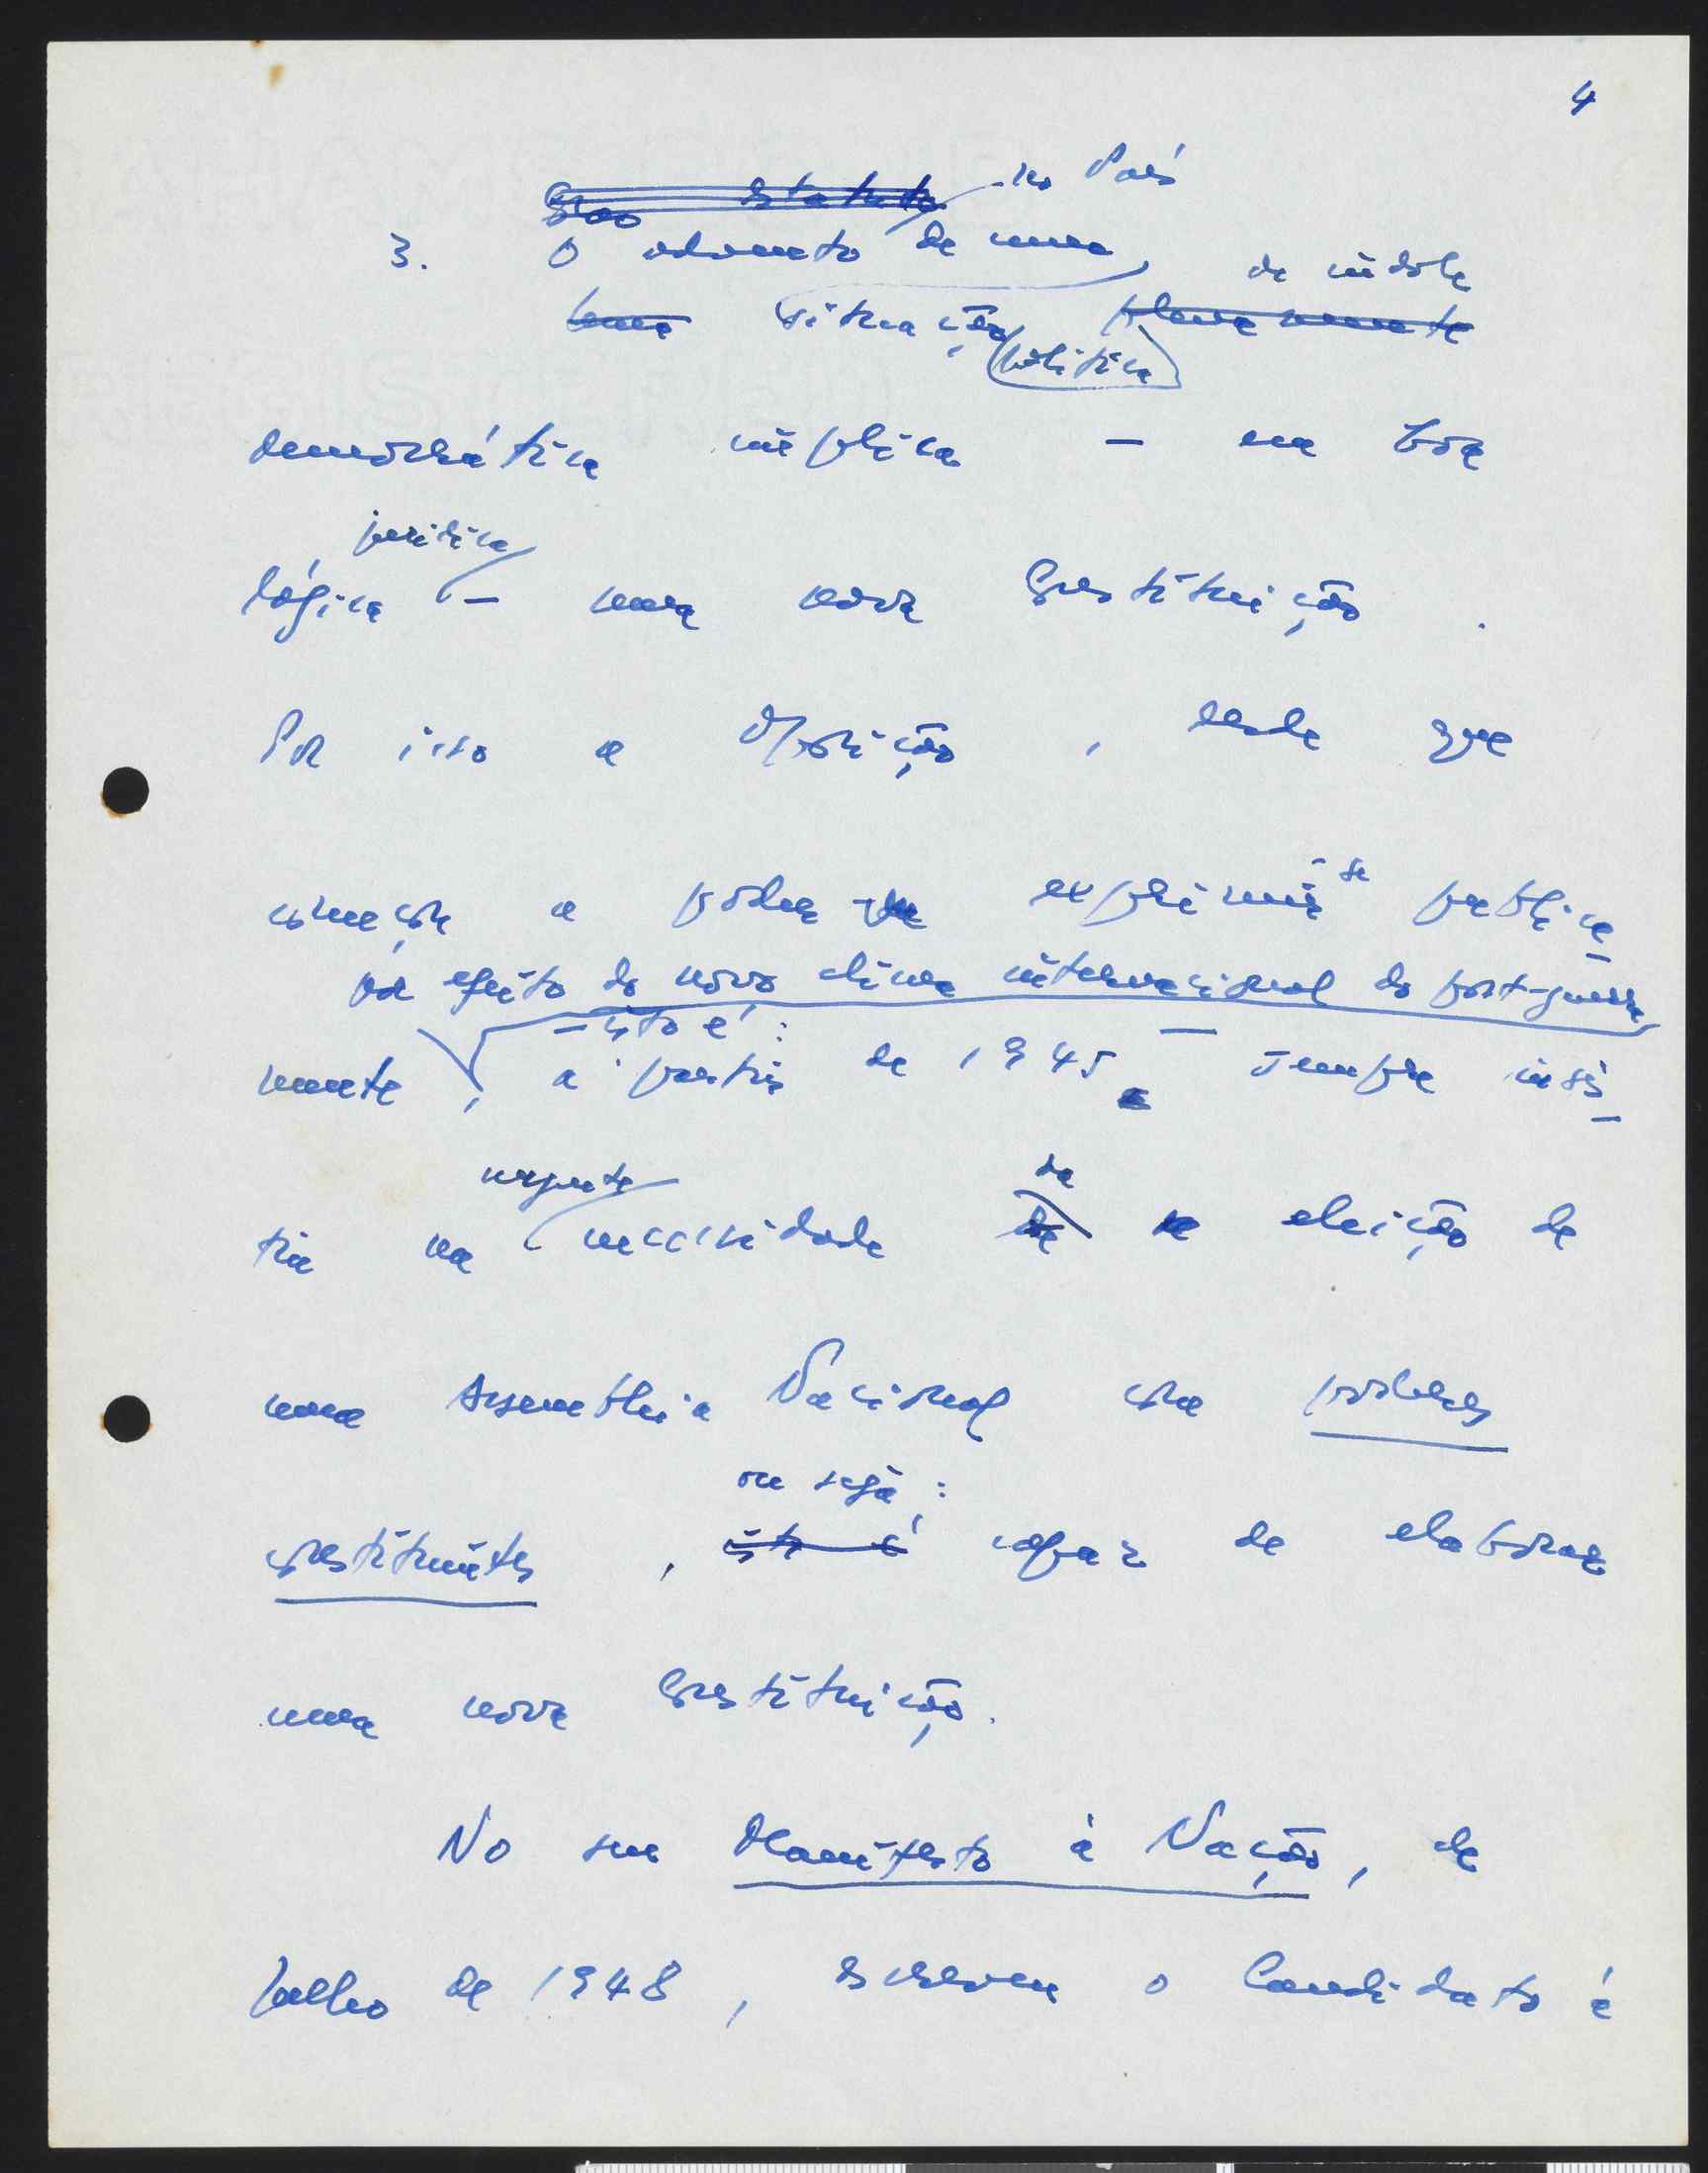 4
no País
3. O advento de uma
de índole
uma situação plenamente
política
democrática implica – na boa
jurídica
lógica – uma nova Constituição.
Por isso a Oposição, desde que
começou a poder exprimir-se publica-
por efeito do novo clima internacional do post-guerra
– isto é:
mente, a partir de 1945 – sempre insis-
urgente
da
tiu na necessidade de eleição de
uma Assembleia Nacional com poderes
ou seja:
constituintes, isto é capaz de elaborar
uma nova Constituição.
No seu Manifesto à Nação, de
Julho de 1948, escreveu o Candidato à